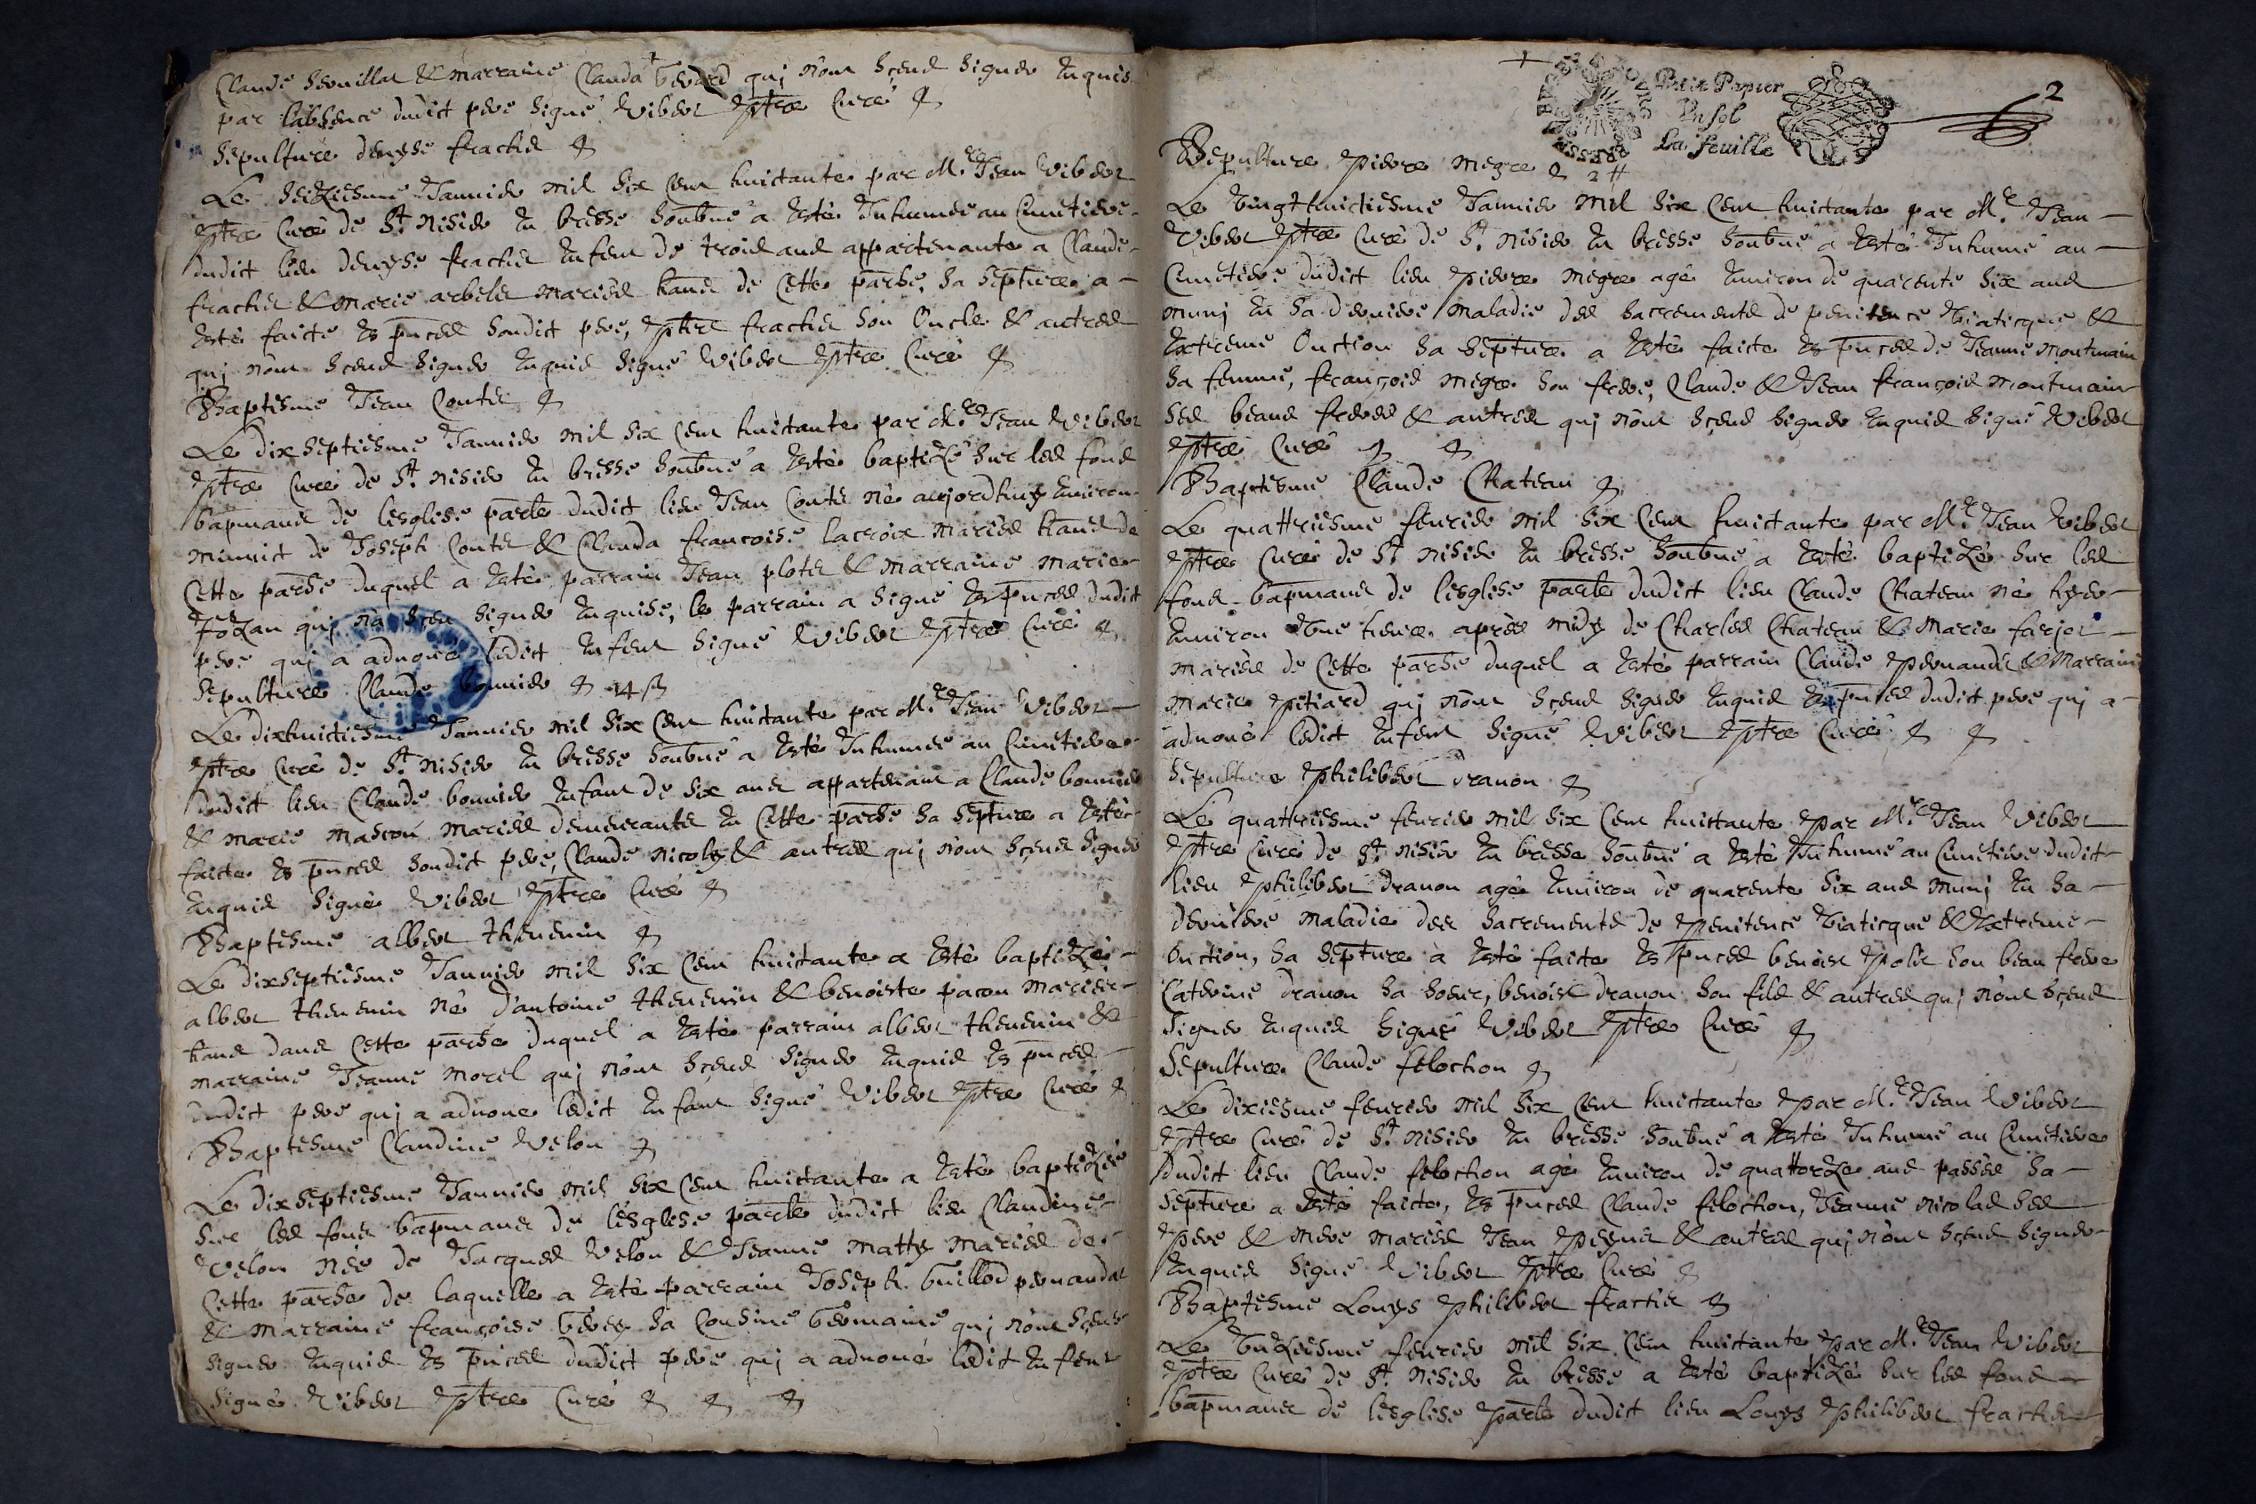 Claude Seruillat & marraine Clauda Gerard quj n'ont sceus signer enquis
par l'absence dudict pere signé Vibert ptre Curé
Sepulture denyse frachet
Le seiziesme Januier mil six cent huictante par Mre Jean Vibert
ptre Curé de St nisier en bresse soubné a esté Inhumée au Cimetiere
dudict lieu denyse frachet enfent de trois ans appartenante a Claude
frachet & marie arbelet mariés hans de Cette parsse, sa septure a
esté faicte es pnces sondict pere, ptre frachet son Oncle & autres
quj n'ont sceus signer enquis signé Vibert ptre Curé
Baptesme Jean Contet
Le dix septiesme Januier mil six cent huictante par Mre Jean Vibert
ptre Curé de St nisier en bresse soubné a esté baptizé sur les fons
bapmaux de lesglise parle dudict lieu Jean Contet né aujordhuy enuiron
minuict de Joseph Contet & Clauda francoise lacroix mariés hans de
Cette parsse duquel a esté parrain Jean plotet & marraine marie
Jozan quj n'a sceu signer enquise, le parrain a signé es pnces dudict
pere quj a aduoué ledict enfent signé Vibert ptre Curé
Sepulture Claude bonnier 14 s
Le dixhuictiesme Januier mil six cent huictante par Mre Jean Vibert
ptre Curé de St nisier en bresse soubné a esté Inhumée au Cimetiere
dudict lieu Claude bonnier enfant de six ans appartenant a Claude bonnier
& marie mascon mariés demeurants en Cette parsse sa septure a esté
faicte es pnces sondict pere, Claude nicoly & autres quj n'ont sceus signer
enquis signé Vibert ptre Curé
Baptesme albert theuenin
Le dixseptiesme Januier mil six cent huictante a esté baptizé
albert theuenin né d'antoine theuenin & benoiste pacon mariés
hans dans Cette parsse duquel a esté parrain albert theuenin &
marraine Jeanne morel quj n'ont sceus signer enquis es pnces
dudict pere quj a aduoue ledict enfant signé Vibert ptre Curé
Baptesme Claudine Velon
Le dixseptiesme Januier mil six cent huictante a esté baptizée
sur les fons bapmaux de lesglise parle dudict lieu Claudine
Velon née de Jacques Velon & Jeanne mathy mariés de
Cette parsse de laquelle a esté parrain Joseph Guillod pernandat
& marraine françoise Gerey sa Cousine Germaine quj n'ont sceus
signer enquis es pnces dudict pere quj a aduoué ledit enfent
signé Vibert ptre Curé
2
Petit Papier
Un sol
La feuille
Sepulture pierre megre 2 #
Le Vingthuictiesme Januier mil six cent huictante par Mre Jean
Vibert ptre Curé de St nisier en bresse soubné a esté Inhumé au
Cimetiere dudict lieu pierre megre agé enuiron de quarente six ans
munj en sa derniere maladie des sacrements de penitence Viaticque &
extreme Onction sa septure a esté faicte es pnces de Jeanne montmain
sa femme, françois megre son frere, Claude & Jean françois montmain
ses beaus freres & autres quj n'ont sceus signer enquis signé Vibert
ptre Curé
Baptesme Claude Chateau
Le quattriesme feurier mil six cent huictante par Mre Jean Vibert
ptre Curé de St nisier en bresse soubné a esté baptizé sur les
fons bapmaux de lesglise parle dudict lieu Claude Chateau né hyer
enuiron Vne heure aprés midy de Charles Chateau & Marie farjot
mariés de Cette parsse duquel a esté parrain Claude pernandet & Marraine
marie pitiard quj n'ont sceus signer enquis es pnces dudict pere quj a
aduoué ledict enfent signé Vibert ptre Curé
Sepulture philibert dranon
Le quattriesme feurier mil six cent huictante par Mre Jean Vibert
ptre Curé de St nisier en bresse soubné a esté Inhumé au Cimetiere dudict
lieu philibert dranon agé enuiron de quarente six ans munj en sa
derniere maladie des sacrements de penitence Viaticque & extreme
Onction, sa septure a esté faicte es pnces benoist polet son beau frere
Caterine dranon sa soeur, benoist dranon son fils & autres quj n'ont sceus
signer enquis signé Vibert ptre Curé
Sepulture Claude felochon
Le dixiesme feurier mil six cent huictante par Mre Jean Vibert
ptre Curé de St nisier en bresse soubné a esté Inhumé au Cimetiere
dudict lieu Claude felochon agé enuiron de quattorze ans passés sa
septure a esté faicte, es pnces Claude felochon, Jeanne nicolas ses
pere & mere mariés Jean peyne & autres quj n'ont sceus signer
enquis signé Vibert ptre Curé
Baptesme Louys philibert frachet
Le Vnziesme feurier mil six cent huictante par Mre Jean Vibert
ptre Curé de St nisier en bresse a esté baptizé sur les fons
bapmaux de lesglise parle dudict lieu Louys philibert frachet